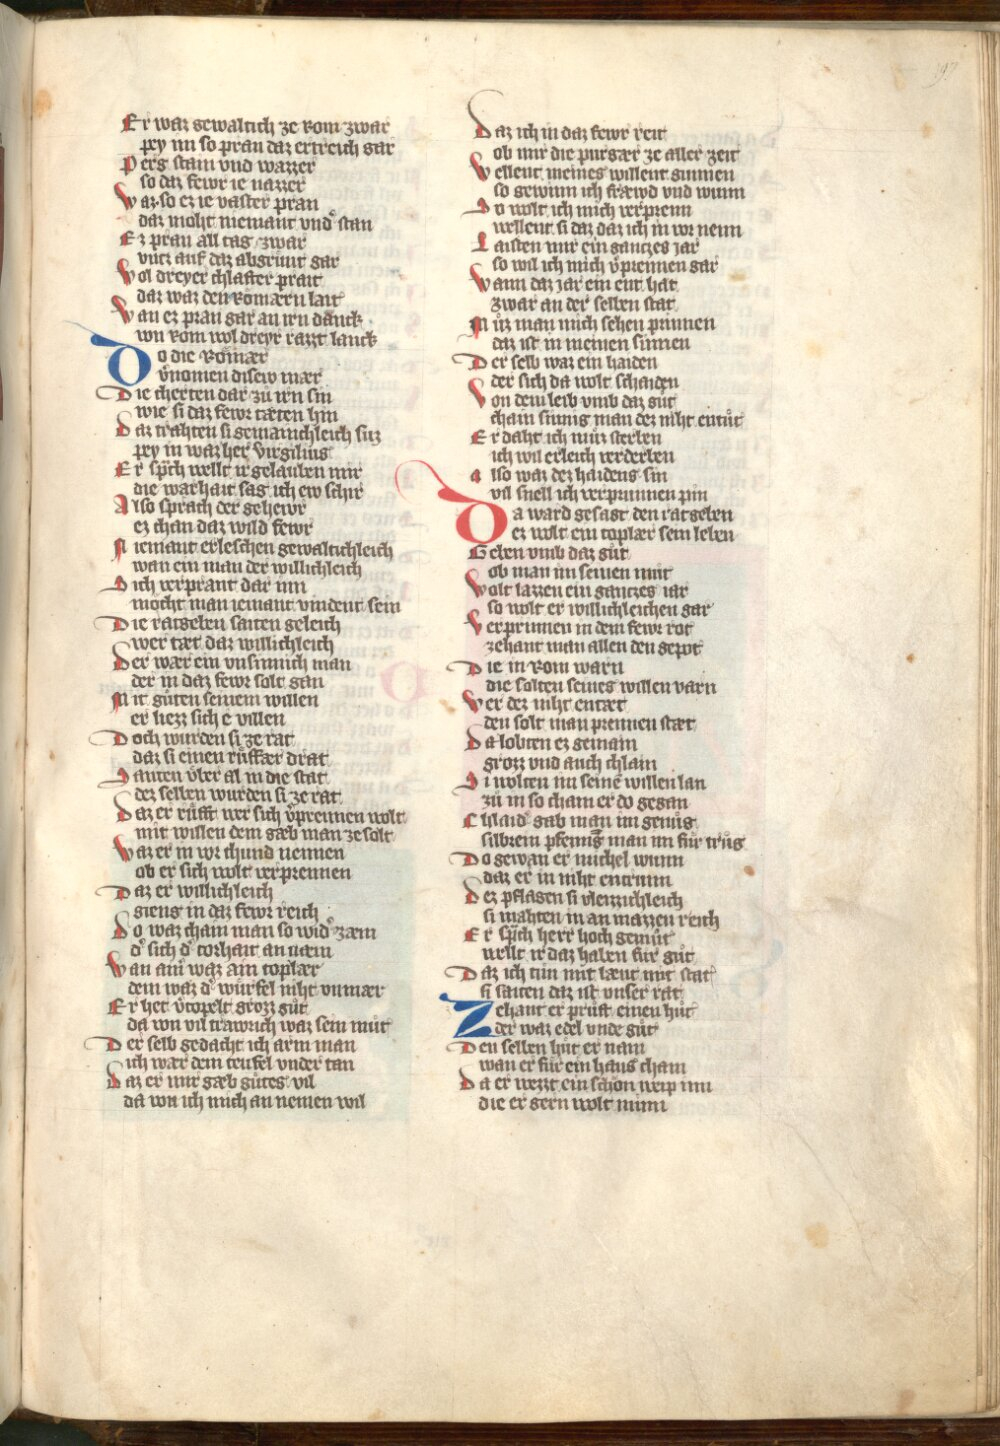 197
Er waz gewaltich ze Rom zwar
pey im so pran daz ertreich gar
Perg stain vnd wazzer
so daz fewr ie nazzer
Waz so ez ie vaster pran
daz moht niemant vnderstan
Ez pran all tag zwar
vntz auf daz abgrunt gar
Wol dreyer chlafter prait
daz waz den Romærn lait
Wan ez pran gar an irn danck
von Rom wol dreyr razzt lanck
Do die Romær
vernomen disew mær
Die cherten dar zů irn sin
wie si daz fewr tæten hin
Daz trahten si gemainchleich sus
pey in waz her virgilius
Er sp̃ch wellt ir gelauben mir
die warhait sag ich ew schir
Also sprach der gehewr
ez chan daz wild fewr
Niemant erleschen gewaltichleich
wan ein man der willichleich
Sich verprant dar inn
möcht man iemant vindent sein
Die ratgeben saiten geleich
wer tæt daz willichleich
Der wær ein vnsinnich man
der in daz fewr solt gan
Mit gůten seinem willen
er liezz sich e villen
Doch wurden si ze rat
daz si einen růffær drat
Santen vber al in die stat
dez selben wurden si ze rat
Daz er růfft wer sich vprennen wolt
mit willen dem gæb man ze solt
Waz er in vor chund nennen
ob er sich wolt verprennen
Daz er willichleich
gieng in daz fewr reich
Do waz cham man so wid zæm
d sich d torhait an næm
Wan ain waz ain toplær
dem waz d würfel niht vnmær
Er het vtopelt grozz gůt
da von vil trawrich waz sein můt
Der selb gedacht ich arm man
ich wær dem teufel vnder tan
Daz er mir gæb gůtes vil
da von ich mich an nemen wil
Daz ich in daz fewr reit
ob mir die purgær ze aller zeit
Wellent meines willent sinnen
so gewinn ich fræwd vnd wunn
So wolt ich mich verprenn
wellent si daz daz ich in vor nenn
Laisten mir ein gantzes jar
so wil ich mich vprennen gar
Wann daz jar ein ent hat
zwar an der selben stat
Můz man mich sehen prinnen
daz ist in meinen sinnen
Der selb waz ein haiden
der sich da wolt schaiden
Von dem leib vmb daz gůt
chain sinnig man dez niht entůt
Er daht ich můz sterben
ich wil erleich verderben
Also waz dez haidens sin
vil snell ich verprunnen pin
Da ward gesagt den ratgeben
ez wolt ein toplær sein leben
Geben vmb daz gůt
ob man im seinen můt
Wolt lazzen ein gantzes iar
so wolt er willichleichen gar
Verprinnen in dem fewr rot
zehant man allen den gepot
Die in Rom warn
die solten seines willen varn
Wer dez niht entæt
den solt man prennen stæt
Da lobten ez gemain
grozz vnd auch chlain
Si wolten im seinē willen lan
zů in so cham er do gegan
Chlaid gab man im genůg
silbrein pfenning man im für trůg
Do gewan er michel wunn
daz er in niht entrunn
Dez pflagen si vleizzichleich
si mahten in an mazzen reich
Er sp̃ch herr hoch gemůt
wellt ir daz haben für gůt
Daz ich tůn mit læut mit stat
si saiten daz ist vnser rat
Zehant er průft einen hůt
der waz edel vnde gůt
Den selben hůt er nam
wan er für ein haus cham
Da er wezzt ein schön weip inn
die er gern wolt minn